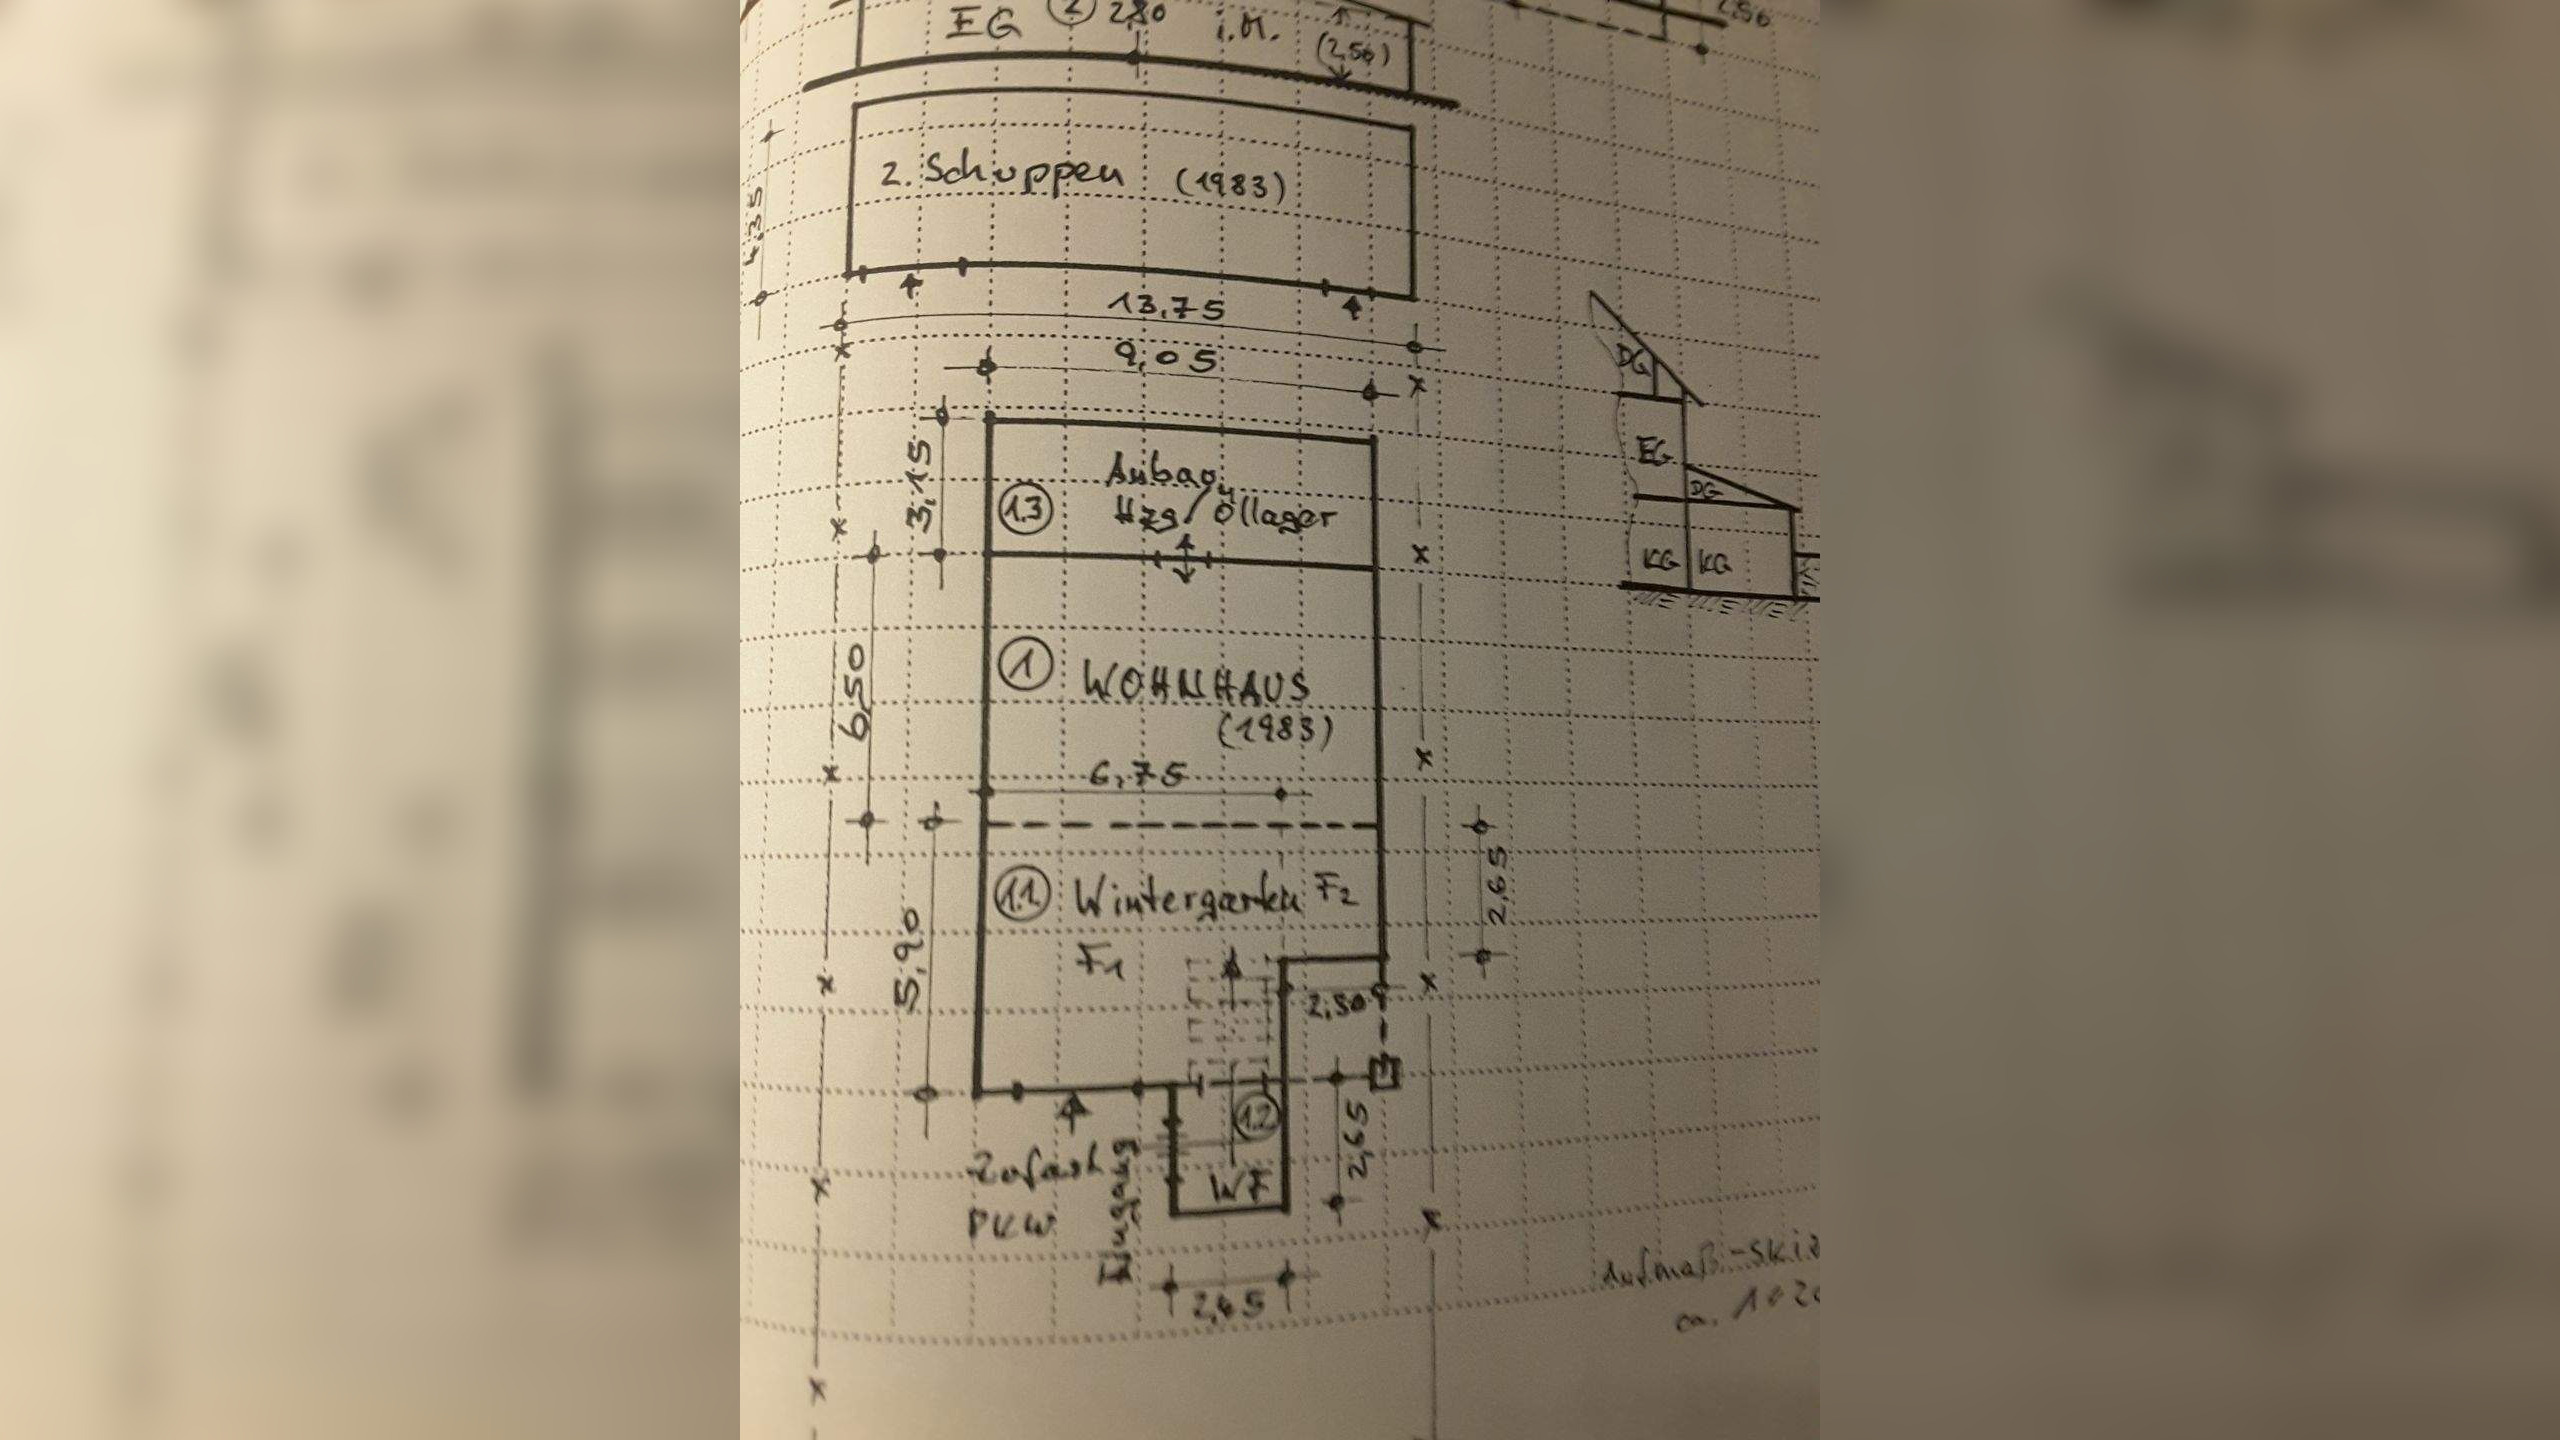 EG 2 2,80 i.M. (2,56)
2,56
2. Schuppen (1983)
4,35
13,75
9,05
3,15
1.3 Anbau
Hzg/Öllager
DG
EG
DG
KG KG
1 WOHNHAUS
(1983)
6,50
6,75
1.1 Wintergarten F2
F1
5,90
2,65
2,30
1.2
2,65
Zufahrt
PKW
Eingang
WF
2,45
Aufmaß-Ski
ca.